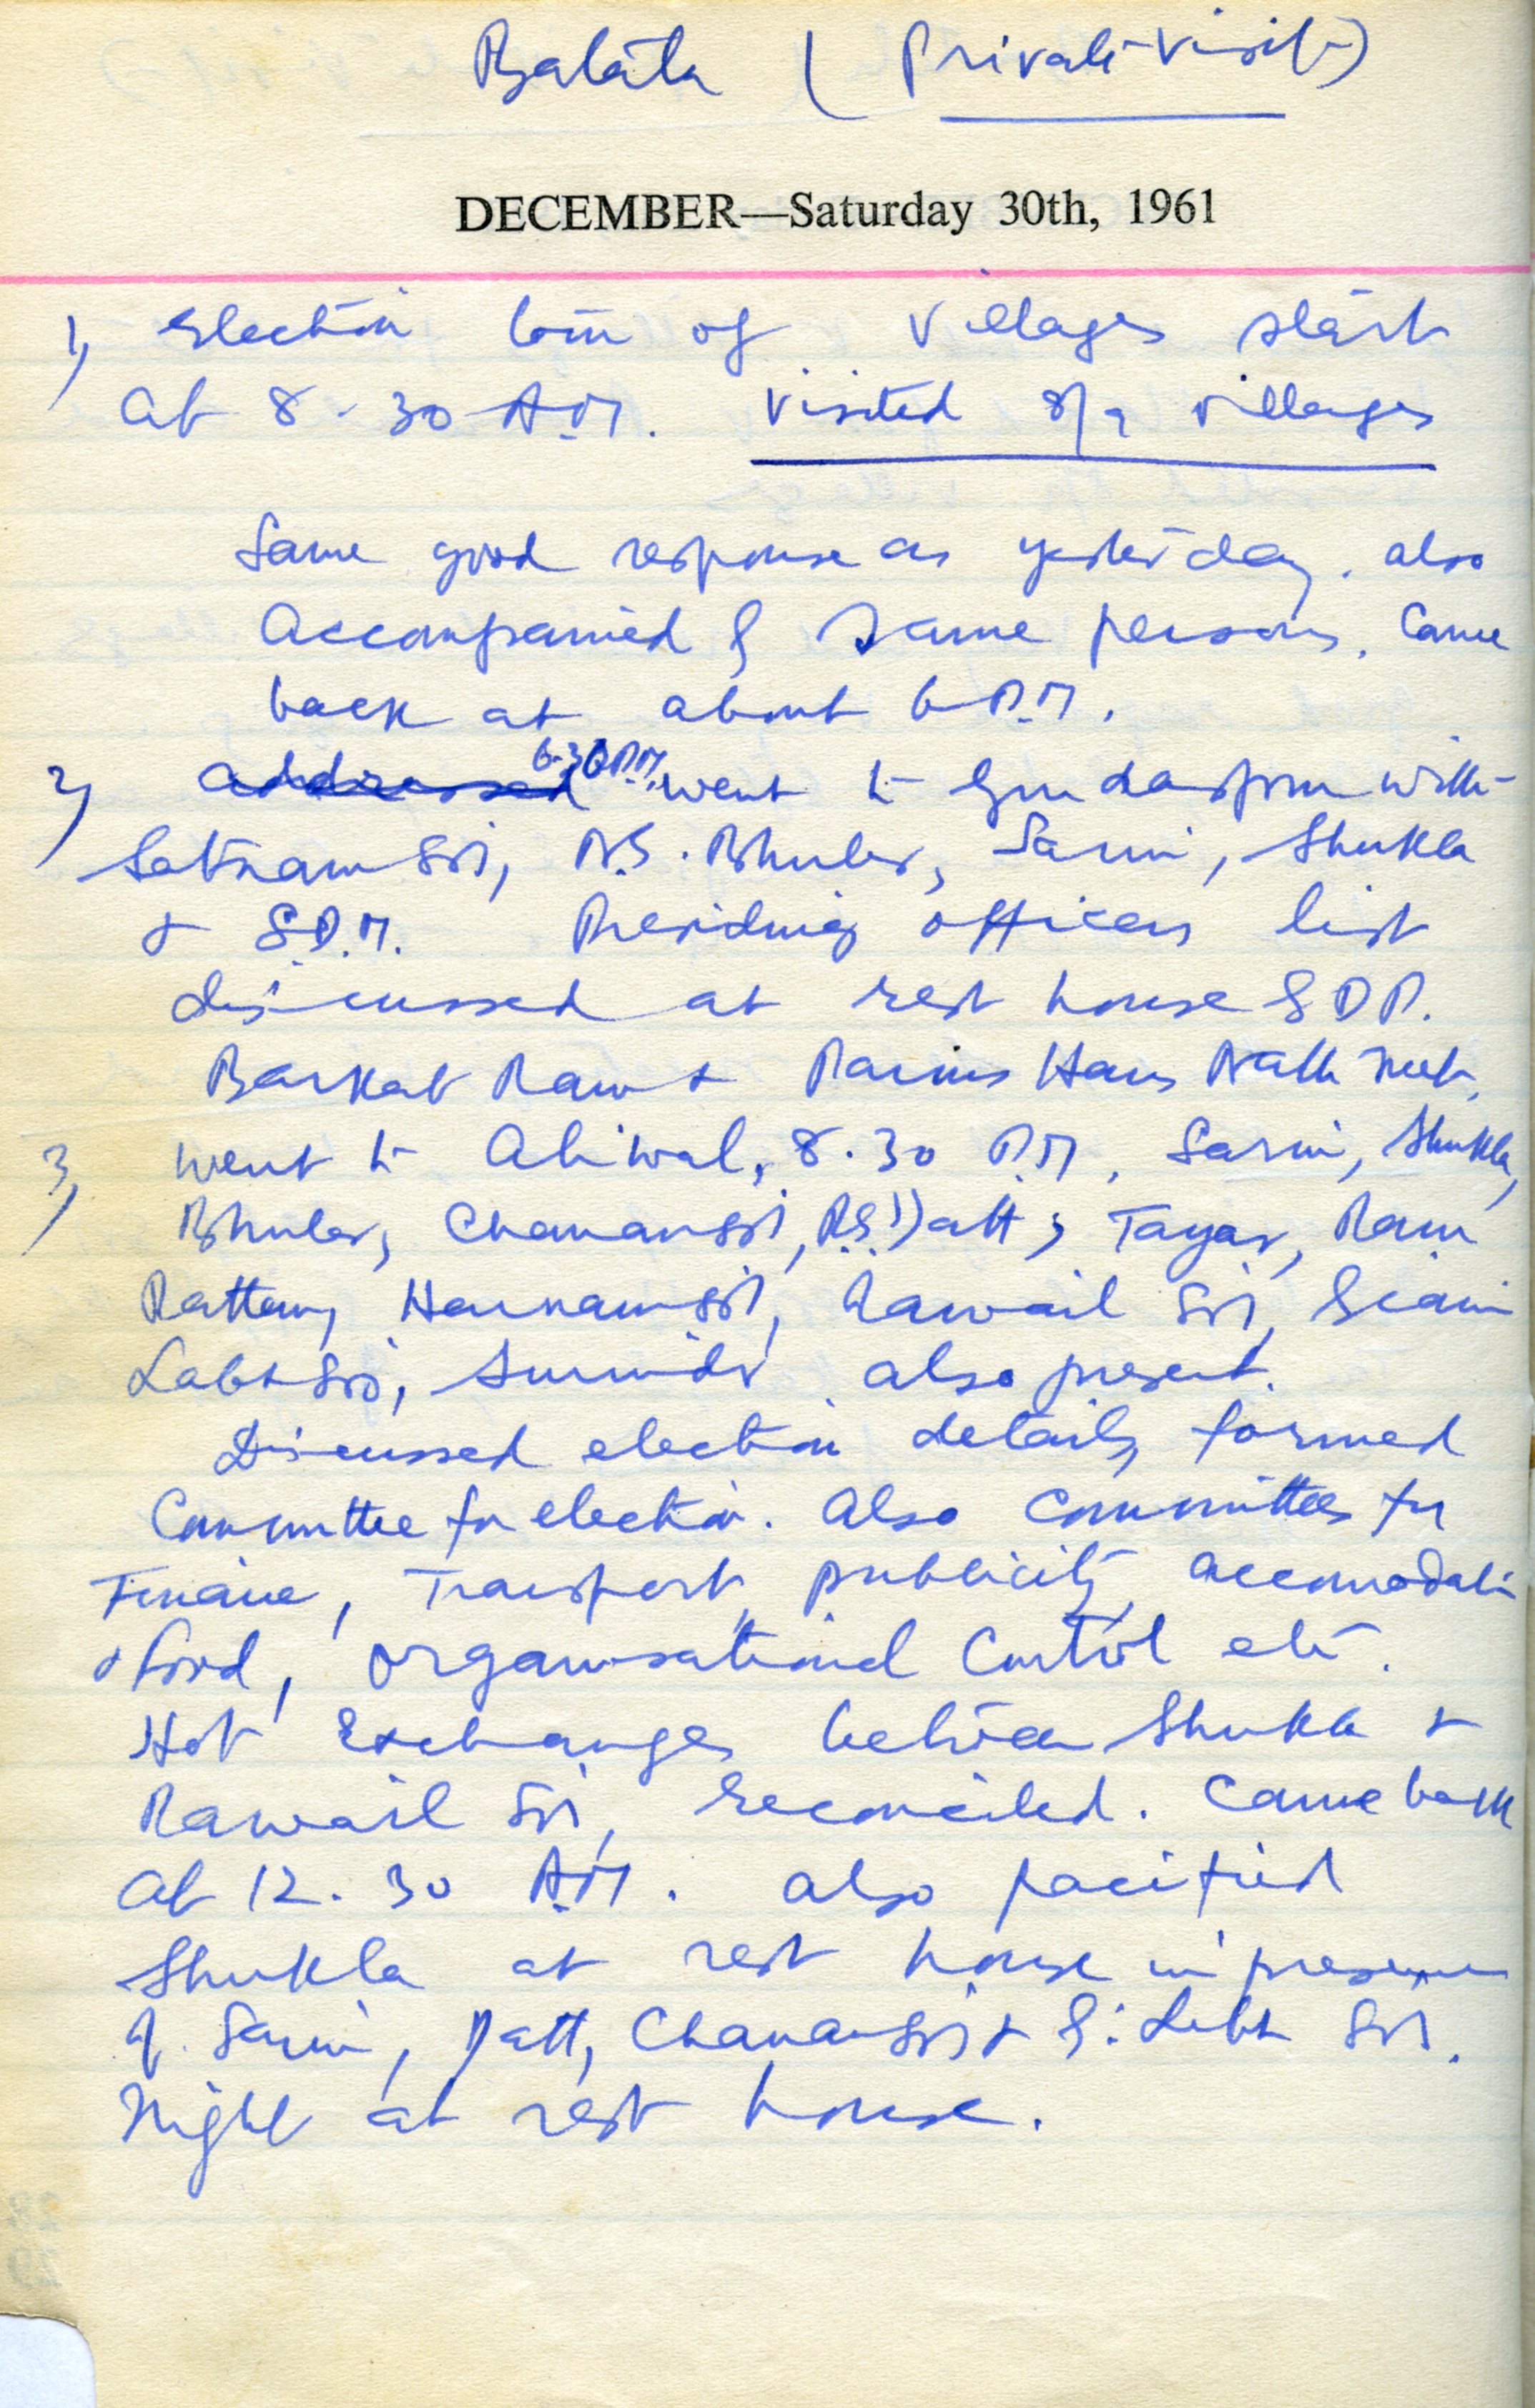 Batala (Private Visit)
DECEMBER—Saturday 30th, 1961
1) Election tour of villages start
at 8-30 A.M. Visited 8/9 villages
Same good response as yesterday. also
accompanied by same persons. Came
back at about 6 P.M.
6.30 P.M.
2) addressed went to Gurdaspur with
Satnam Singh, Bhuler, Saini, Shukla
+ S.D.M. Presiding officers list
discussed at rest house
Barkat Ram + Hans Nath met.
3) went to Aliwal, 8.30 P.M. Saini, Shukla,
Bhuler, Chanan Singh, Datt, Tayar, Ram
Rattan, Harnam Singh, Rawail Singh, Giani
Labh Singh, Surinder also present.
Discussed election details, formed
Committee for election. Also Committees for
Finance, Transport, publicity, accomodation
+ food, organisational Control etc.
Hot Exchanges between Shukla +
Rawail Singh, reconciled. Came back
at 12.30 A.M. also pacified
Shukla at rest house in presence
of Saini, Datt, Chanan Singh + G. Labh Singh.
Night at rest house.